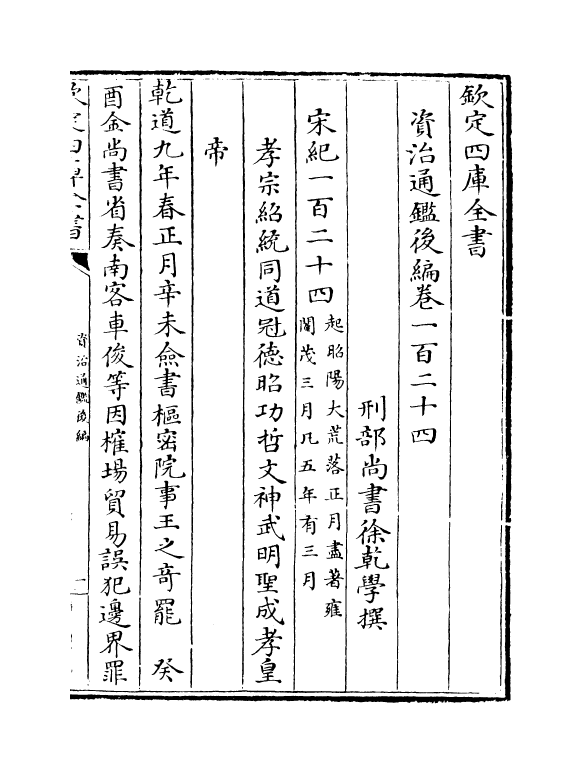 欽定四庫全書
資治通鑑後編卷一百二十四
刑部尚書徐乾學撰
宋紀一百二十四起昭陽大荒落正月盡著雍
閹茂三月凡五年有三月
孝宗紹統同道冠德昭功哲文神武明聖成孝皇
帝
乾道九年春正月辛未僉書樞密院事王之奇罷　癸
酉金尚書省奏南客車俊等因榷場貿易誤犯邊界罪
欽定四庫全書
資治通鑑後編